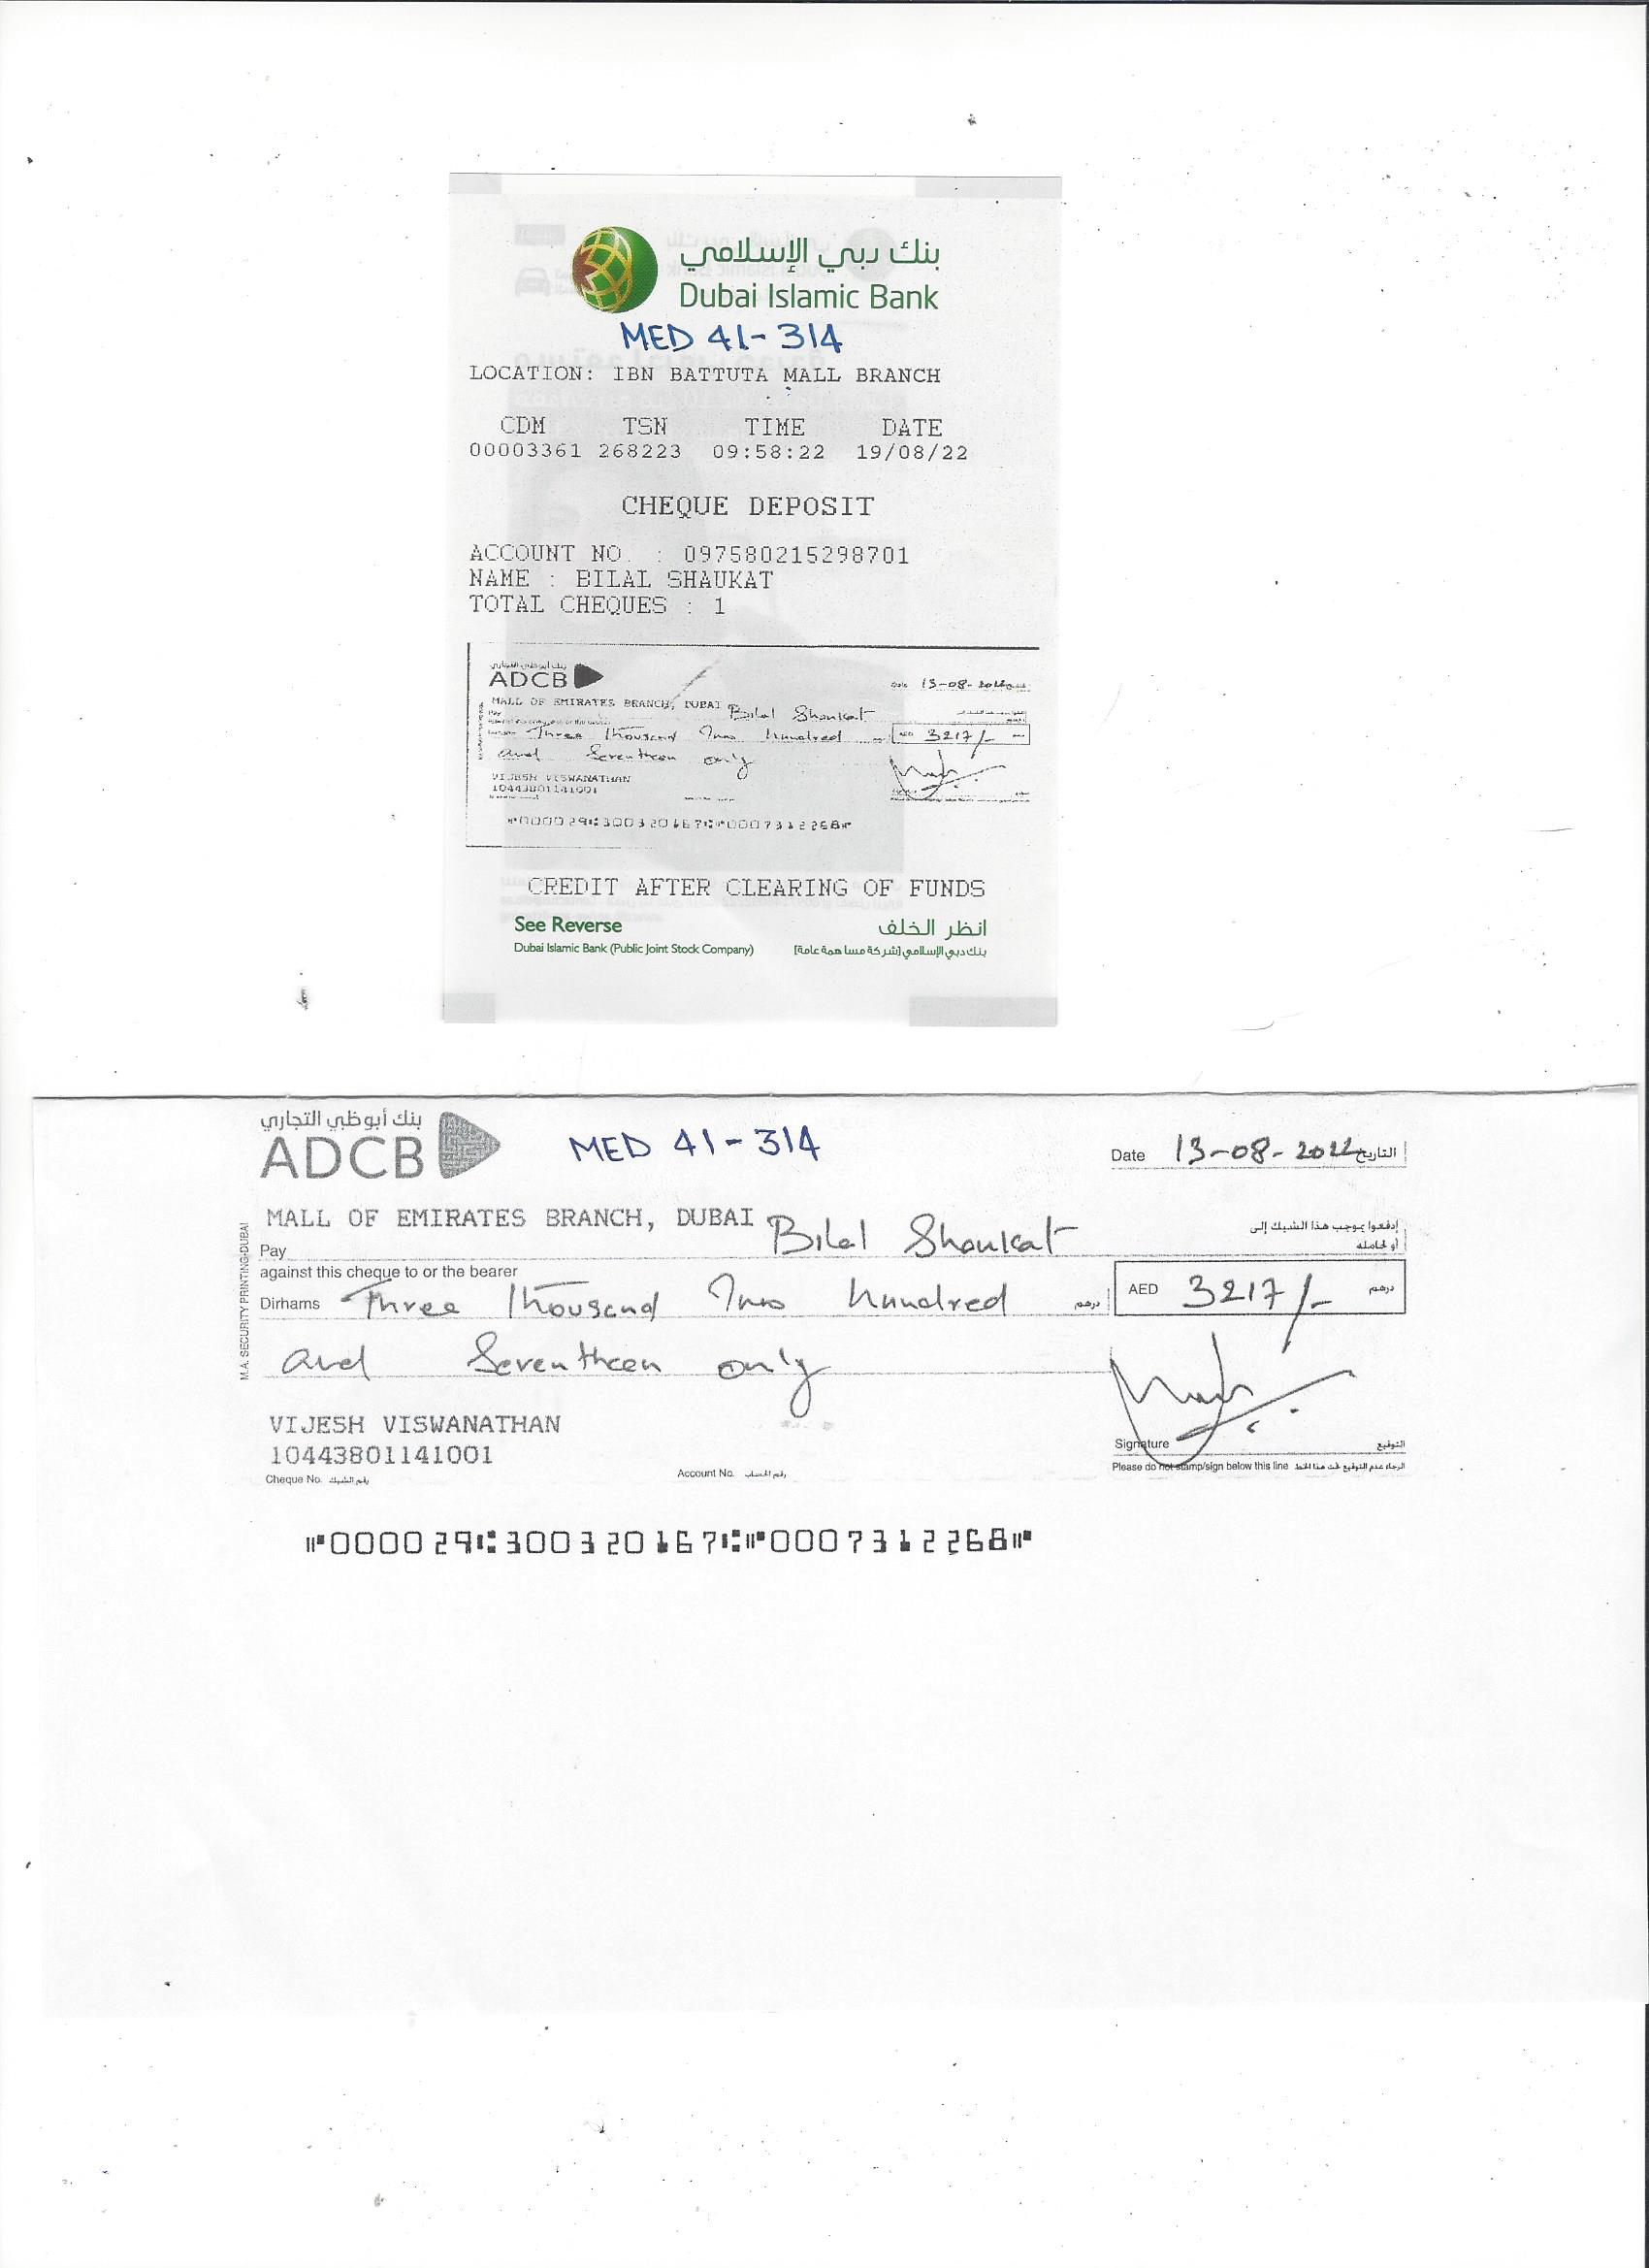 بنك دبي الإسلامي
Dubai Islamic Bank
MED 41-314
LOCATION: IBN BATTUTA MALL BRANCH
CDM TSN TIME DATE
00003361 268223 09:58:22 19/08/22
CHEQUE DEPOSIT
ACCOUNT NO. : 097580215298701
NAME : BILAL SHAUKAT
TOTAL CHEQUES : 1
بنك أبوظبي التجاري
ADCB
Date 13-08-2022
MALL OF EMIRATES BRANCH, DUBAI
Pay Bilal Shaukat
Three Thousand Two hundred AED 3217/-
and Seventeen only
VIJESH VISWANATHAN
10443801141001
⑈000029⑆300320167⑆⑈0007312268⑈
CREDIT AFTER CLEARING OF FUNDS
See Reverse انظر الخلف
Dubai Islamic Bank (Public Joint Stock Company) بنك دبي الإسلامي (شركة مساهمة عامة)
بنك أبوظبي التجاري
ADCB
MED 41-314
Date 13-08-2022 التاريخ
MALL OF EMIRATES BRANCH, DUBAI
Pay Bilal Shaukat إدفعوا بموجب هذا الشيك إلى
أو لحامله
against this cheque to or the bearer
Dirhams Three Thousand Two hundred درهم AED 3217/- درهم
and Seventeen only
M.A. SECURITY PRINTING-DUBAI
VIJESH VISWANATHAN
10443801141001
Signature التوقيع
Cheque No. رقم الشيك Account No. رقم الحساب Please do not stamp/sign below this line الرجاء عدم التوقيع تحت هذا الخط
⑈000029⑆300320167⑆⑈0007312268⑈